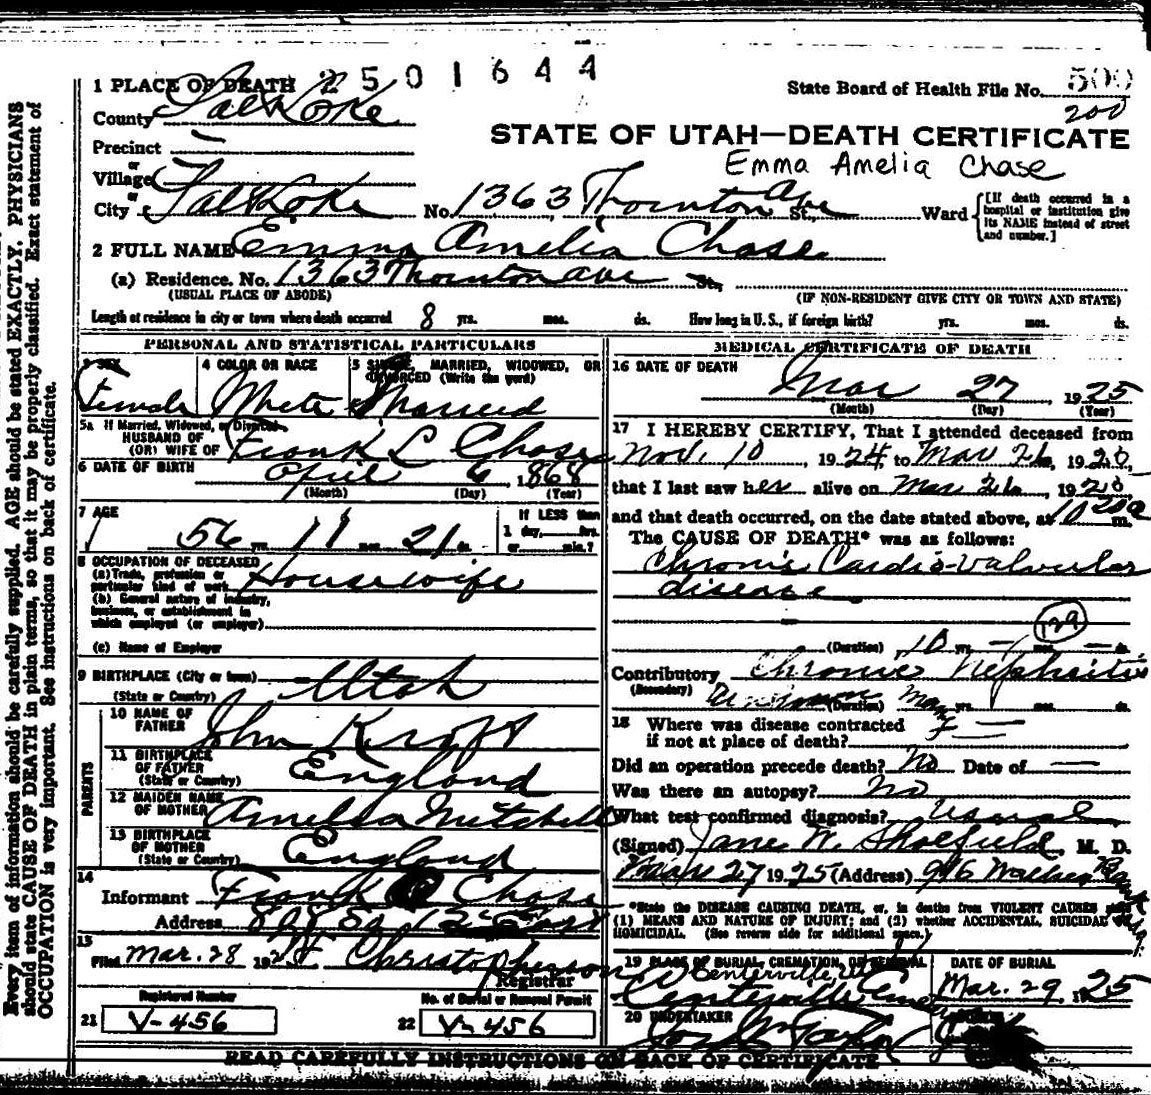 2501644
1 PLACE OF DEATH
State Board of Health File No. 500
200
County Salt Lake
STATE OF UTAH—DEATH CERTIFICATE
Precinct —
Emma Amelia Chase
or
Village
or
City Salt Lake No. 1363 Thornton Ave St., Ward [If death occurred in a hospital or institution give its NAME instead of street and number.]
2 FULL NAME Emma Amelia Chase
(a) Residence. No. 1363 Thornton Ave St,
(USUAL PLACE OF ABODE) (IF NON-RESIDENT GIVE CITY OR TOWN AND STATE)
Length of residence in city or town where death occurred 8 yrs. mos. ds. How long in U.S., if foreign birth? yrs. mos. ds.
PERSONAL AND STATISTICAL PARTICULARS
3 SEX Female
4 COLOR OR RACE White
5 SINGLE, MARRIED, WIDOWED, OR DIVORCED (Write the word) Married
5a If Married, Widowed, or Divorced
HUSBAND OF
(OR) WIFE OF Frank L Chase
6 DATE OF BIRTH April 6, 1868
(Month) (Day) (Year)
7 AGE 56 yrs. 11 mos. 21 ds.
If LESS than 1 day, hrs. or min.?
8 OCCUPATION OF DECEASED
(a) Trade, profession or particular kind of work Housewife
(b) General nature of industry, business, or establishment in which employed (or employer)
(c) Name of Employer
9 BIRTHPLACE (City or town) Utah
(State or Country)
PARENTS
10 NAME OF FATHER John Kroft
11 BIRTHPLACE OF FATHER England
(State or Country)
12 MAIDEN NAME OF MOTHER Amelia Mitchell
13 BIRTHPLACE OF MOTHER England
(State or Country)
14
Informant Frank Chase
Address 808 So 12 East
15
Filed Mar. 28 1925 Christopherson
Registrar
Registered Number
21 V-456
No. of Burial or Removal Permit
22 V-456
MEDICAL CERTIFICATE OF DEATH
16 DATE OF DEATH
Mar 27 1925
(Month) (Day) (Year)
17 I HEREBY CERTIFY, That I attended deceased from
Nov. 10, 1924, to Mar 26, 1925,
that I last saw her alive on Mar 26, 1925
and that death occurred, on the date stated above, at 10 20 a m.
The CAUSE OF DEATH* was as follows:
Chronic Cardio-valvular
disease
129
(Duration) 10 yrs. — mos. — ds.
Contributory Chronic Nephritis
(Secondary) (Duration) yrs. mos. ds.
18 Where was disease contracted
if not at place of death? —
Did an operation precede death? No Date of —
Was there an autopsy? No
What test confirmed diagnosis? Usual
(Signed) Jane W. Skolfield, M. D.
Mar 27 1925 (Address) 916 Walker Bank Bldg.
*State the DISEASE CAUSING DEATH, or, in deaths from VIOLENT CAUSES state
(1) MEANS AND NATURE OF INJURY; and (2) whether ACCIDENTAL, SUICIDAL or
HOMICIDAL. (See reverse side for additional space.)
19 PLACE OF BURIAL, CREMATION, OR REMOVAL
Centerville, Utah
Centerville Cemetery
DATE OF BURIAL
Mar. 29, 1925
20 UNDERTAKER
READ CAREFULLY INSTRUCTIONS ON BACK OF CERTIFICATE
Every item of information should be carefully supplied. AGE should be stated EXACTLY. PHYSICIANS
should state CAUSE OF DEATH in plain terms, so that it may be properly classified. Exact statement of
OCCUPATION is very important. See instructions on back of certificate.